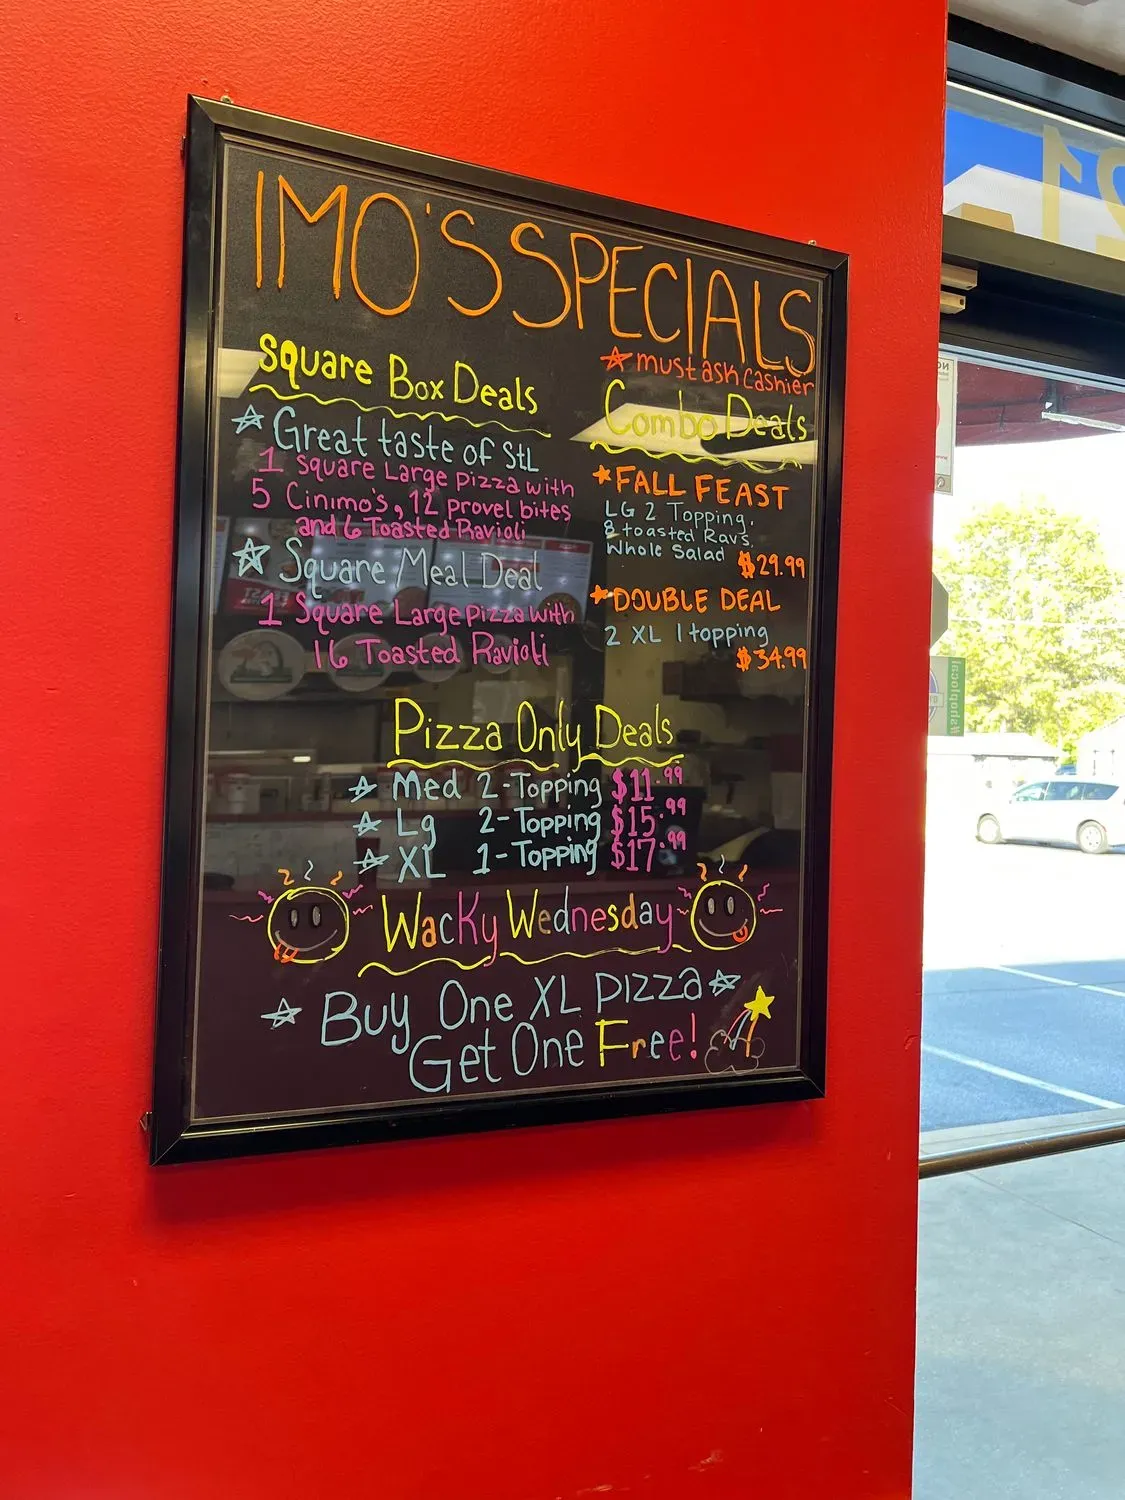 IMO'S SPECIALS
Square Box Deals
Great taste of StL
1 Square Large pizza with
5 Cinimo's, 12 provel bites
and 6 Toasted Ravioli
Square Meal Deal
1 Square Large pizza with
16 Toasted Ravioli
must ask cashier
Combo Deals
FALL FEAST
LG 2 Topping,
8 toasted Ravs,
Whole Salad $29.99
DOUBLE DEAL
2 XL 1 topping
$34.99
Pizza Only Deals
Med 2-Topping $11.99
Lg 2-Topping $15.99
XL 1-Topping $17.99
Wacky Wednesday
Buy One XL pizza
Get One Free!
#shoplocal